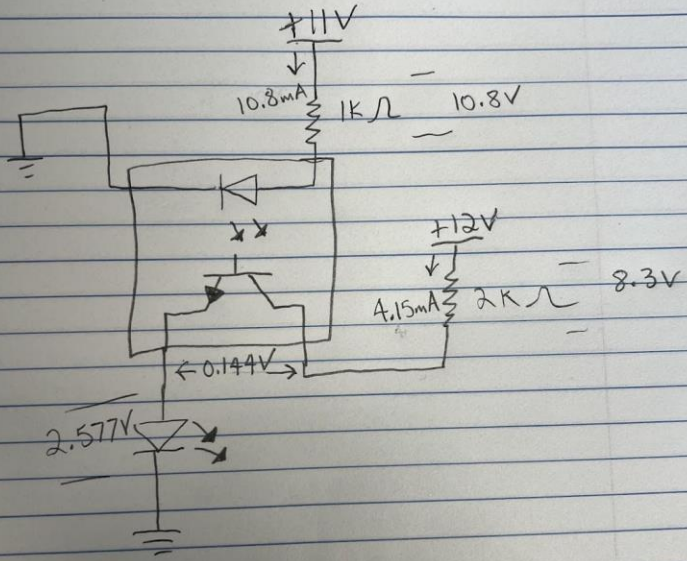 +11V
10.8mA
1KΩ
10.8V
+12V
4.15mA
2KΩ
8.3V
0.144V
2.577V